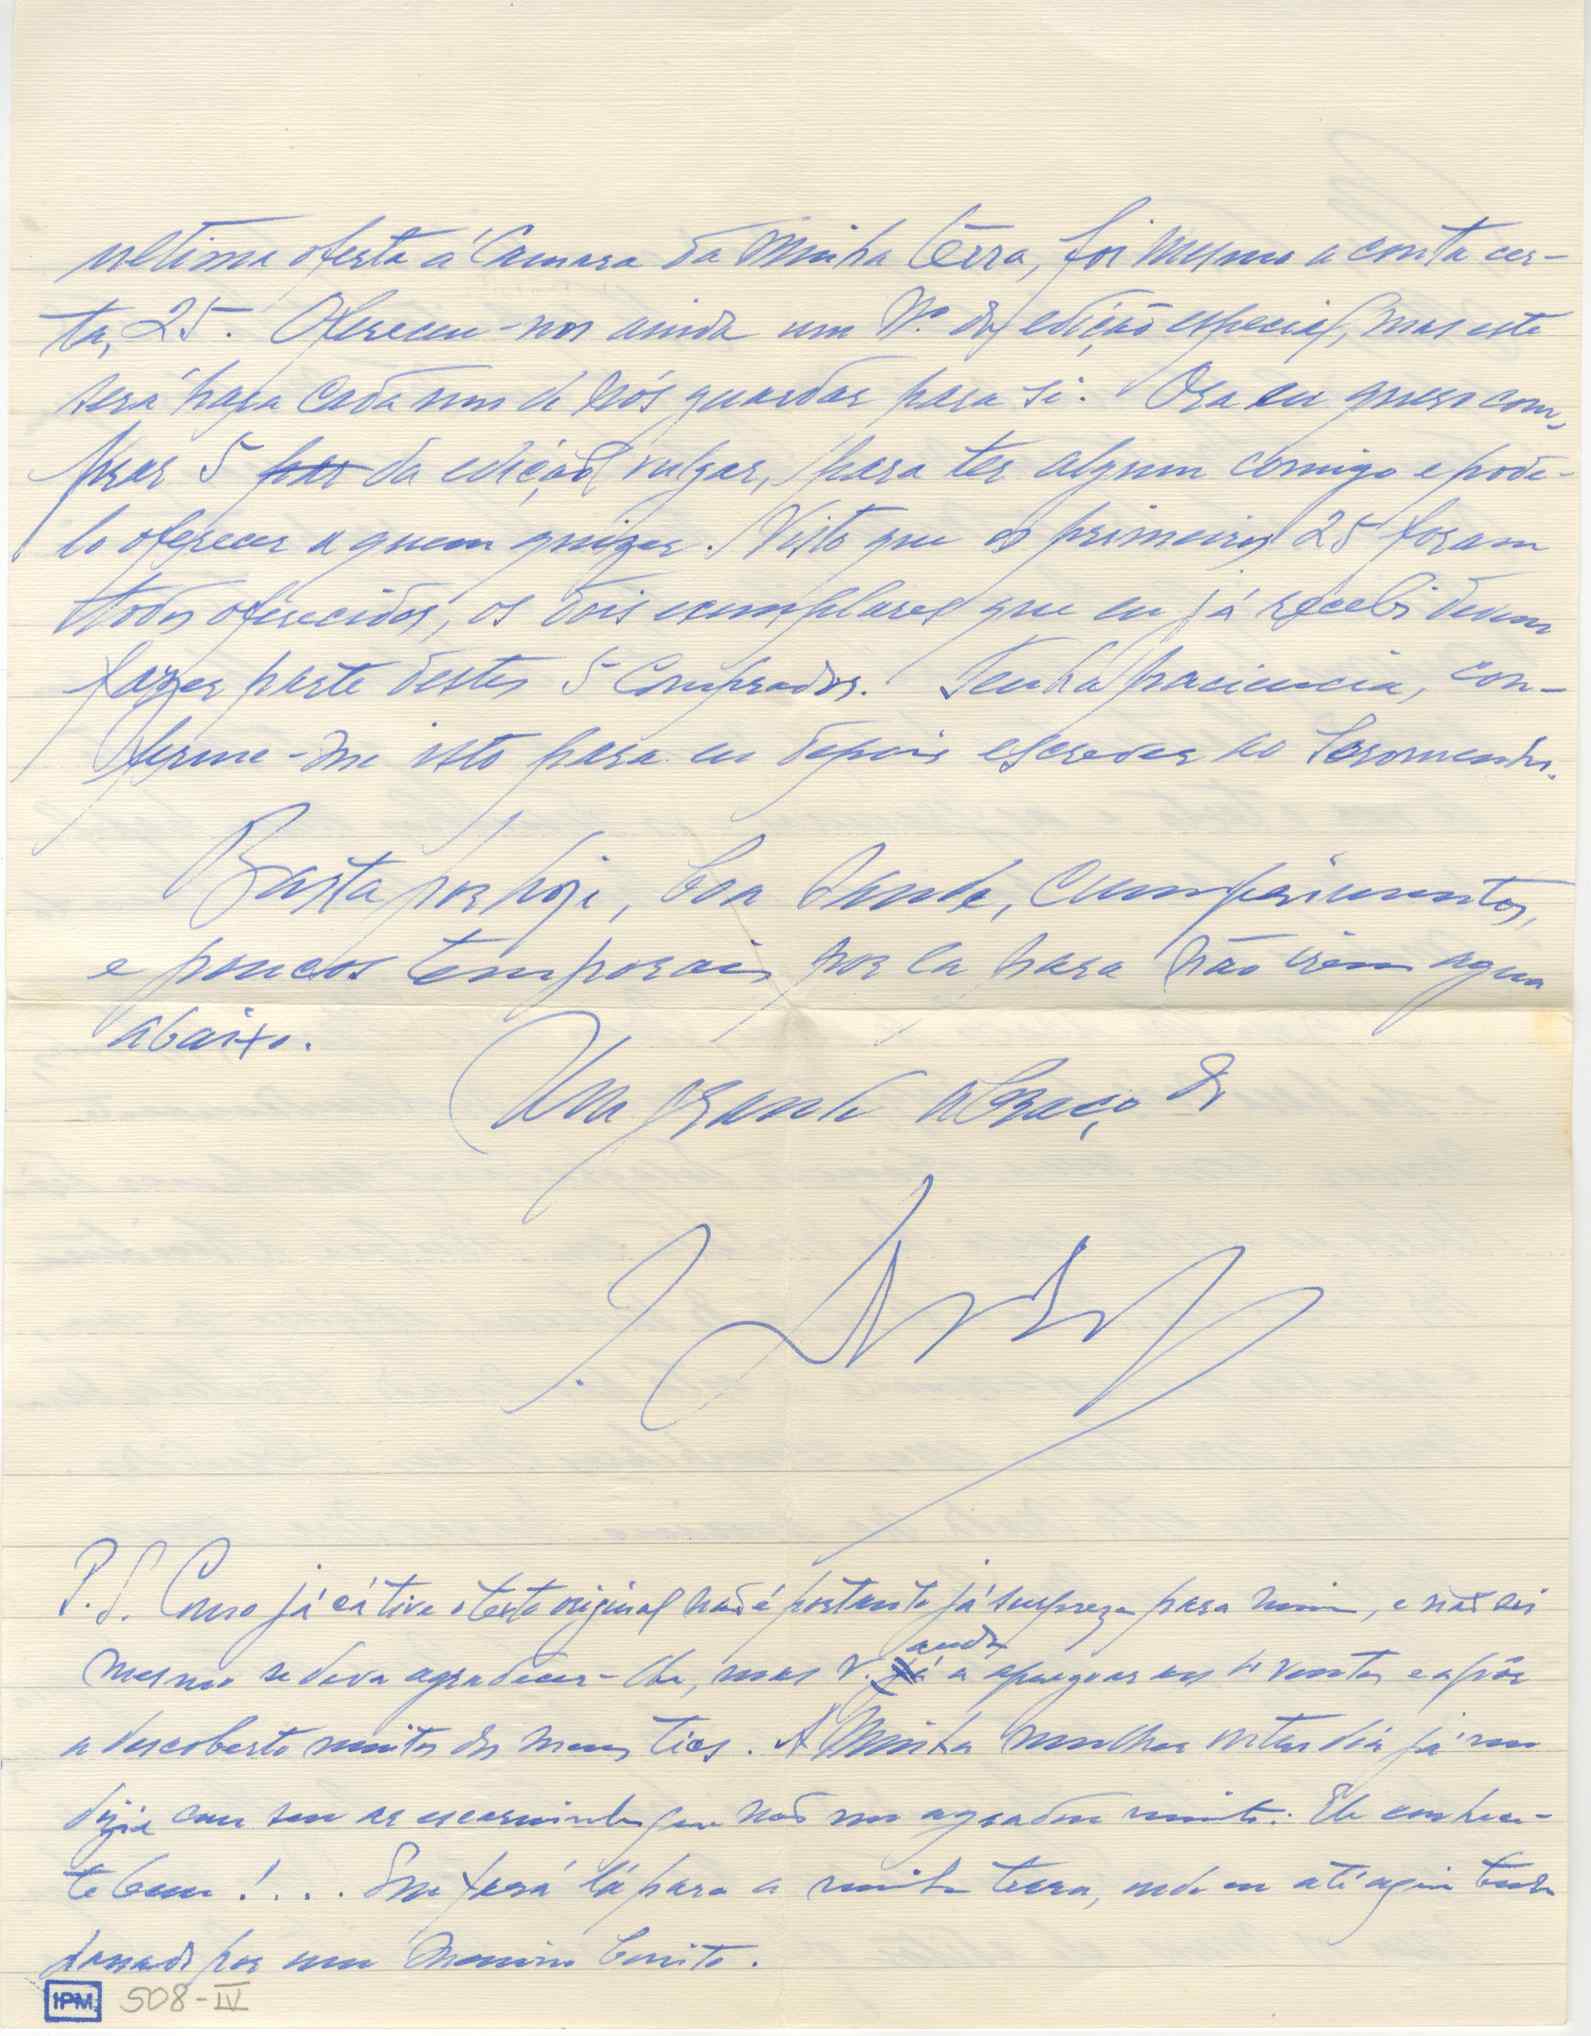 ultima oferta á Camara da Minha Terra, foi mesmo a conta cer-
ta, 25. Ofereceu-nos ainda um Nº da edição especial, mas este
será para cada um de nós guardar para si. Ora eu quero com-
prar 5 da edição vulgar, para ter algum comigo e pode-
lo oferecer a quem quizer. Visto que os primeiros 25 foram
todos oferecidos, os dois exemplares que eu já recebi devem
fazer parte destes 5 comprados. Tenha paciencia, con-
firme-me isto para eu depois escrever ao Soromenho.
Basta por hoje, boa saude, cumprimentos,
e poucos temporais por la para não irem agua
abaixo.
Um grande abraço de
P.S. Como já cá tive o texto original não é portanto já surpreza para mim, e não sei
mesmo se deva agradecer-lhe, mas v. anda a apregoar aos 4 ventos e a pôr
a descoberto muitos dos meus tics. A Minha mulher outro dia já me
dizia com seu ar escarninho que não me agradou muito: Ele conhece-
te bem! . . . Que fará lá para a minha terra, onde eu até aqui tenho
passado por um Menino bonito.
IPM 508-IV